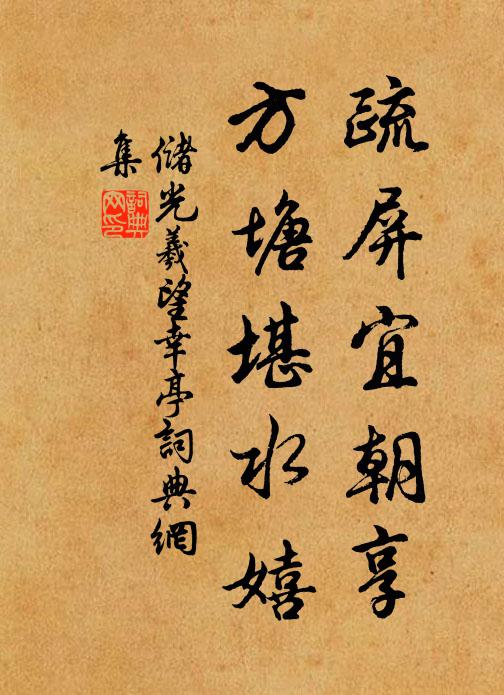 疏屏宜朝享
方塘堪水嬉
儲光羲望幸亭詞典網
集
詞典
网印